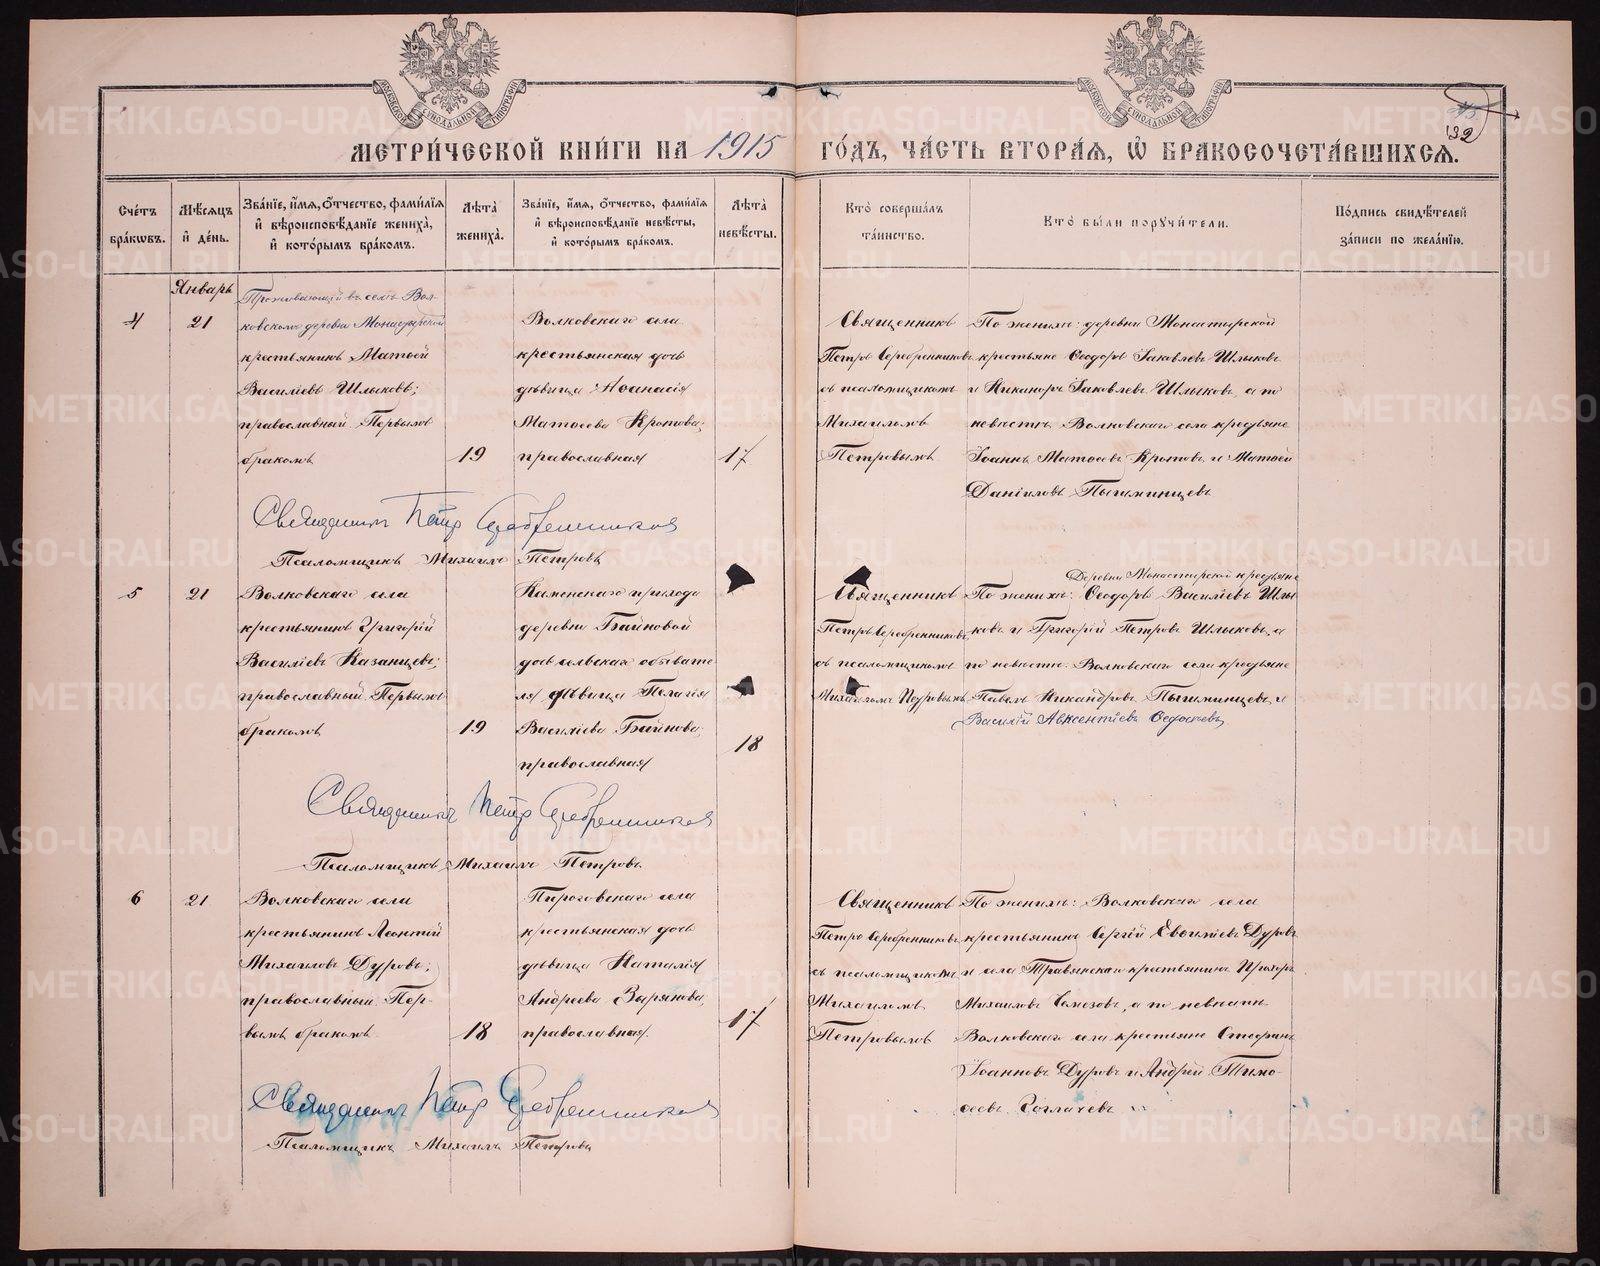 МЕТРИЧЕСКОЙ КНИГИ НА 1915 ГОДЪ, ЧАСТЬ ВТОРАЯ, Ѡ БРАКОСОЧЕТАВШИХСЯ.
132
Счетъ браковъ.
Мѣсяцъ и день.
Званіе, имя, отчество, фамилія и вѣроисповѣданіе жениха, и которымъ бракомъ.
Лѣта жениха.
Званіе, имя, отчество, фамилія и вѣроисповѣданіе невѣсты, и которымъ бракомъ.
Лѣта невѣсты.
Кто совершалъ таинство.
Кто были поручители.
Подпись свидѣтелей записи по желанію.
Январь
4
21
Проживающій въ селѣ Вол-
ковскомъ деревни Монастырской
крестьянинъ Матѳей
Василіевъ Шлыковъ;
православный. Первымъ
бракомъ
19
Волковскаго села
крестьянская дочь
дѣвица Аѳанасія
Матѳеева Кротова;
православная
17
Священникъ
Петръ Серебренниковъ
съ псаломщикомъ
Михаиломъ
Петровымъ
По женихѣ: деревни Монастырской
крестьяне Ѳеодоръ Іаковлевъ Шлыковъ
и Никаноръ Іаковлевъ Шлыковъ, а по
невѣстѣ Волковскаго села крестьяне
Іоаннъ Матѳеевъ Кротовъ и Матѳей
Даніиловъ Пышминцевъ
Священникъ Петръ Серебренниковъ
Псаломщикъ Михаилъ Петровъ
5
21
Волковскаго села
крестьянинъ Григорій
Василіевъ Казанцевъ;
православный. Первымъ
бракомъ
19
Каменскаго прихода
деревни Байновой
дочь сельскаго обывате
ля дѣвица Пелагія
Василіева Байнова;
православная
18
Священникъ
Петръ Серебренниковъ
съ псаломщикомъ
Михаиломъ Петровымъ
Деревни Монастырской крестьяне
По женихѣ: Ѳеодоръ Василіевъ Шлы
ковъ и Григорій Петровъ Шлыковъ, а
по невѣстѣ: Волковскаго села крестьяне
Павелъ Никандровъ Пышминцевъ и
Василій Авксентіевъ Ѳедосѣевъ
Священникъ Петръ Серебренниковъ
Псаломщикъ Михаилъ Петровъ
6
21
Волковскаго села
крестьянинъ Леонтій
Михаиловъ Дуровъ;
православный. Пер-
вымъ бракомъ
18
Пироговскаго села
крестьянская дочь
дѣвица Наталія
Андреева Зырянова,
православная.
17
Священникъ
Петръ Серебренниковъ
съ псаломщикомъ
Михаиломъ
Петровымъ
По женихѣ: Волковскаго села
крестьянинъ Сергій Евѳиміевъ Дуровъ
и села Травянскаго крестьянинъ Прохоръ
Михаиловъ а по невѣстѣ
Волковскаго села крестьяне Стефанъ
Іоанновъ Дуровъ и Андрей Тимо-
ѳеевъ
Священникъ Петръ Серебренниковъ
Псаломщикъ Михаилъ Петровъ
METRIKI.GASO-URAL.RU